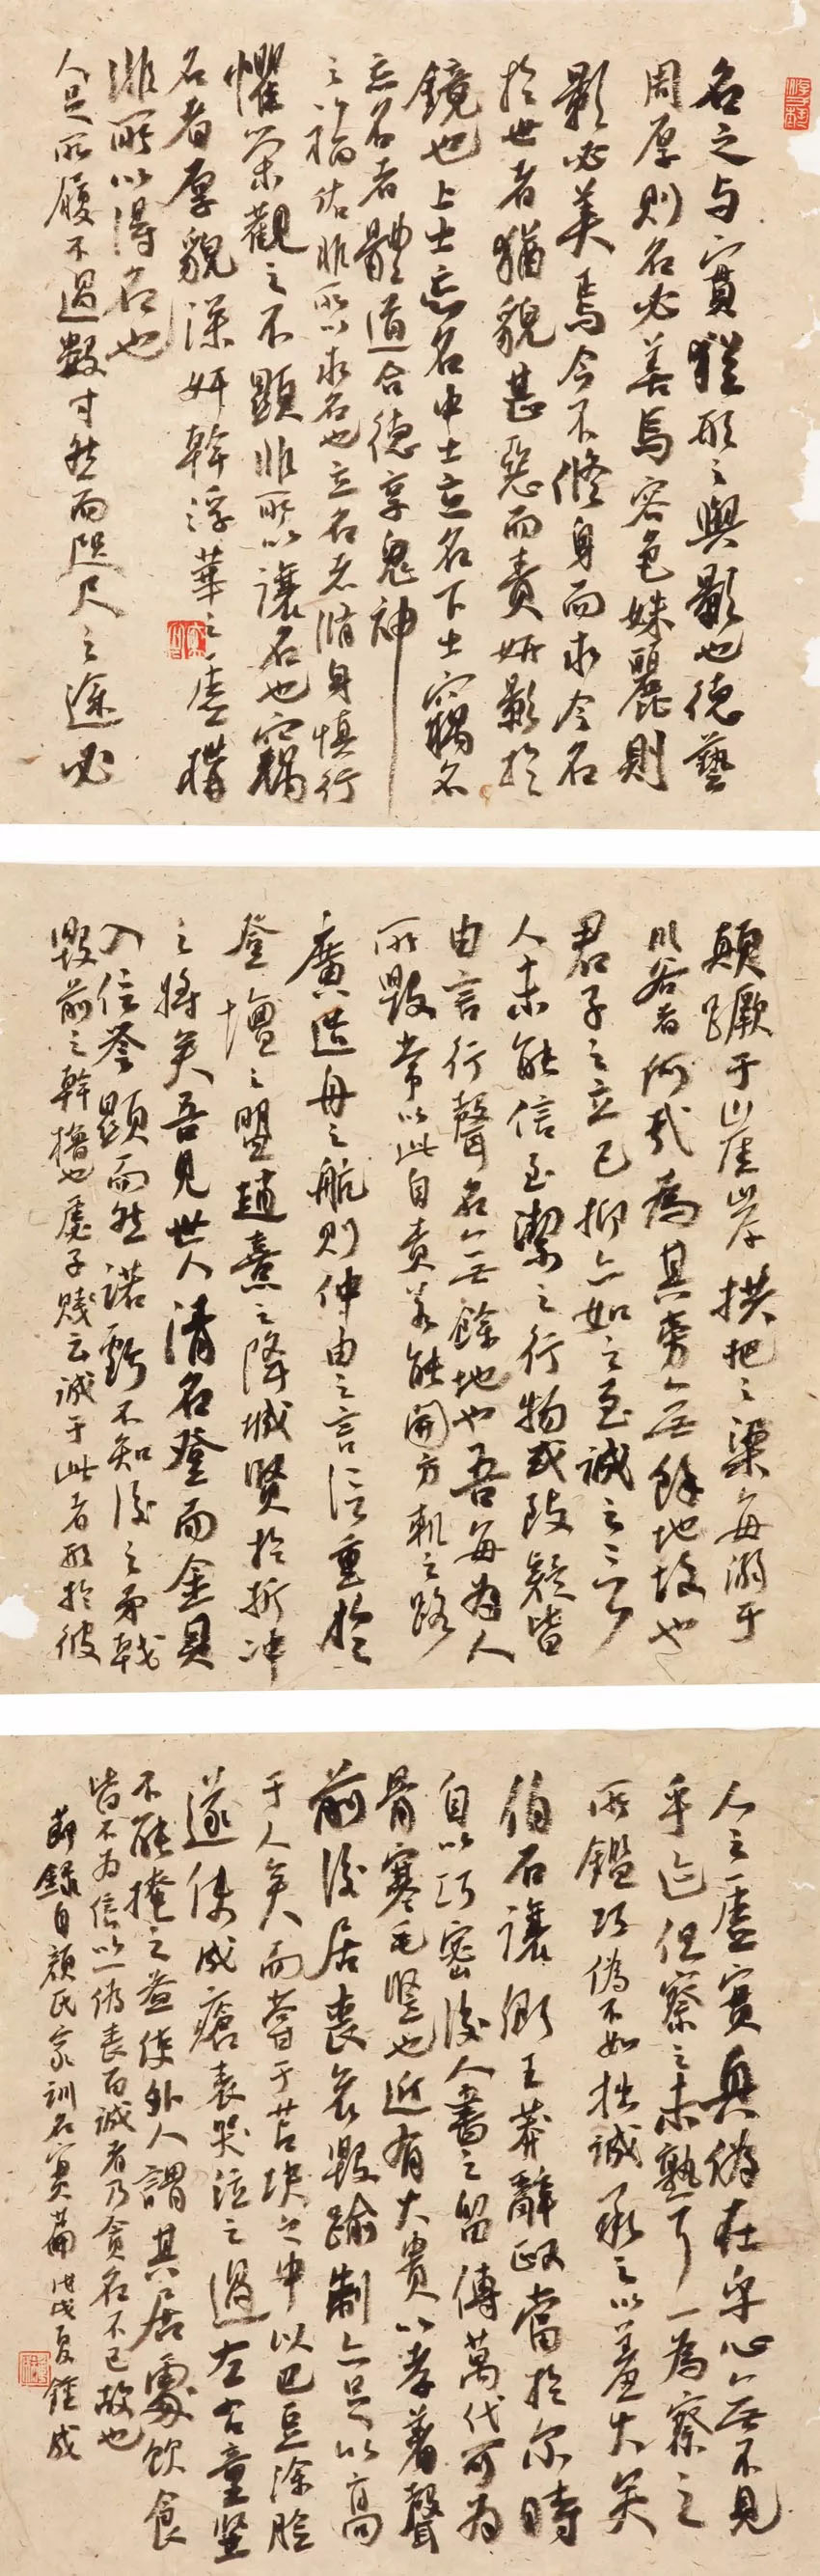 名之与實猶形之與影也德藝
周厚則名必善焉容色姝麗則
影必美焉今不修身而求令名
於世者猶貌甚惡而責妍影於
鏡也上士忘名中士立名下士竊名
忘名者體道合德享鬼神
之福佑非所以求名也立名者脩身慎行
懼榮觀之不顯非所以讓名也竊
名者厚貌深奸幹浮華之虛構
非所以得名也
人足所履不過數寸然而咫尺之途必
顛蹶于山崖岸拱把之梁每溺于
川谷者何哉為其旁無餘地故也
君子之立己抑亦如之至誠之言
人未能信至潔之行物或致疑皆
由言行聲名無餘地也吾每為人
所毀常以此自責若能開方軌之路
廣造舟之航則仲由之言信重於
登壇之盟趙熹之降城賢於折冲
之將矣吾見世人清名登而金貝
入信譽顯而然諾虧不知後之矛戟
毀前之幹櫓也虙子賤云誠于此者形於彼
人之虛實真偽在乎心無不見
乎迹但察之未熟耳一為察之
所鑑巧偽不如拙誠承之以羞大矣
伯石讓卿王莽辭政當於尔時
自以巧密後人書之留傳萬代可為
骨寒毛豎也近有大貴以孝著聲
前後居喪哀毀踰制亦足以高
于人矣而嘗于苫块之中以巴豆涂臉
遂使成瘡表哭泣之過左右童竖
不能掩之益使外人謂其居處飲食
皆不為信以一偽喪百誠者乃貪名不已故也
節錄自顏氏家訓名實篇戊戌夏鍾成